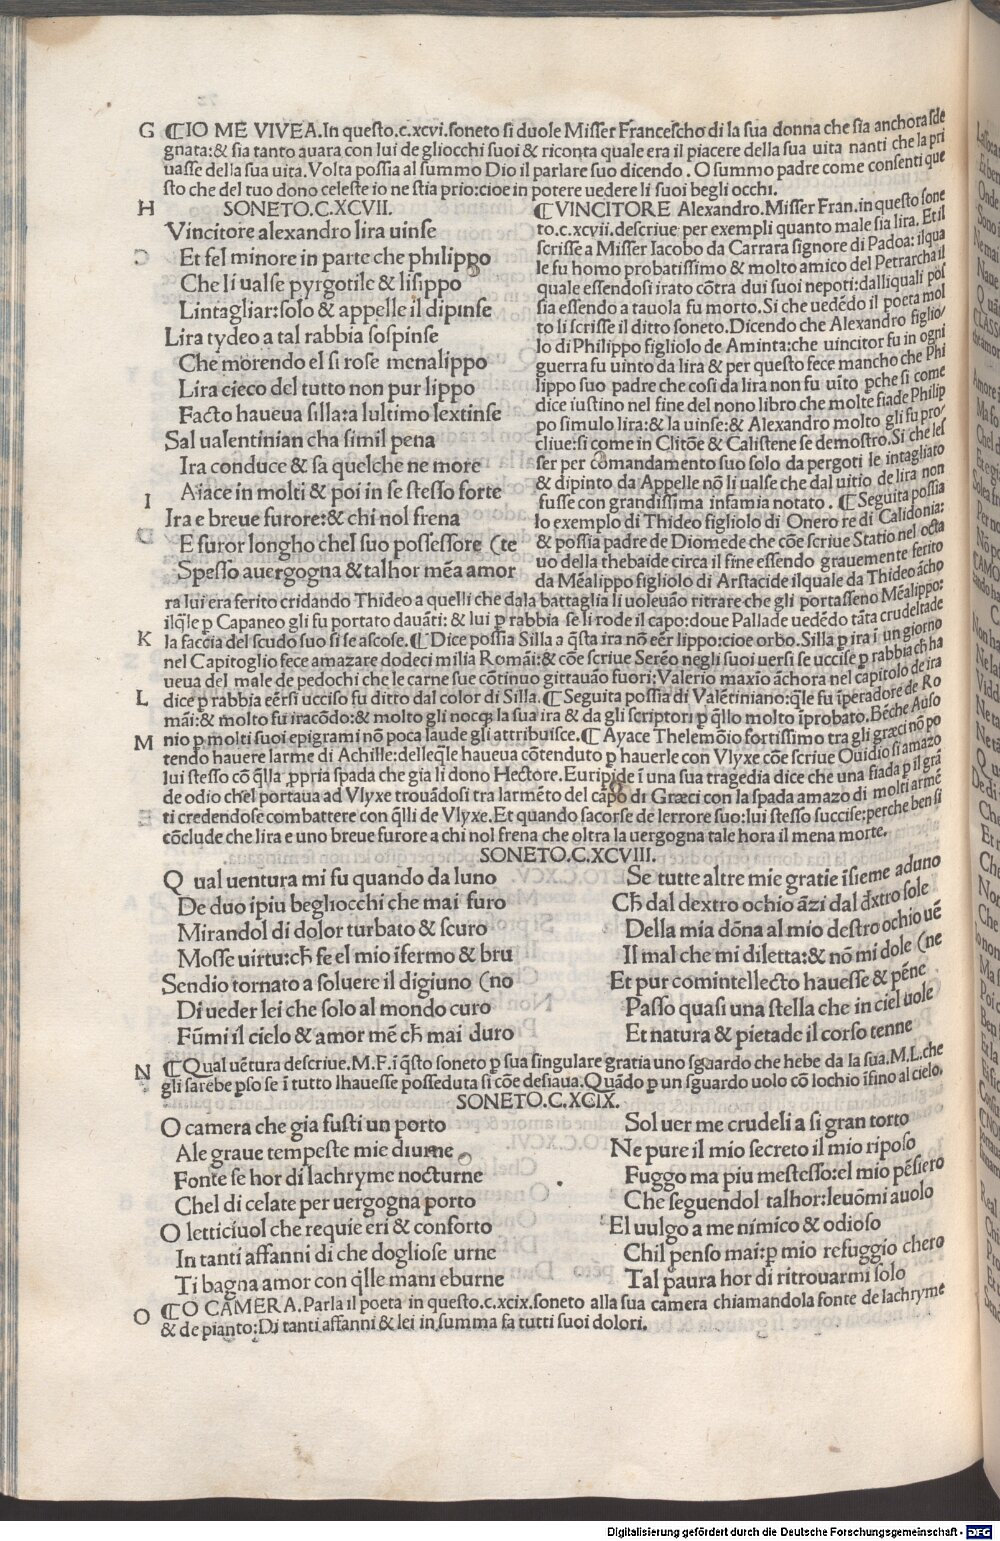 G ⁋IO ME VIVEA.In questo.c.xcvi.soneto si duole Misser Francescho di la sua donna che sia anchora sde
gnata:& sia tanto auara con lui de gliocchi suoi & riconta quale era il piacere della sua uita nanti che la pri
uasse della sua uita. Volta possia al summo Dio il parlare suo dicendo. O summo padre come consenti que
sto che del tuo dono celeste io ne stia prio:cioe in potere uedere li suoi begli occhi.
H SONETO.C.XCVII.
Vincitore alexandro lira uinse
Et fel minore in parte che philippo
Che li ualse pyrgotile & lisippo
Lintagliar:solo & appelle il dipinse
Lira tydeo a tal rabbia sospinse
Che morendo el si rose menalippo
Lira cieco del tutto non pur lippo
Facto haueua silla:a lultimo lextinse
Sal ualentinian cha simil pena
Ira conduce & sa quelche ne more
Aiace in molti & poi in se stesso forte
I Ira e breue furore:& chi nol frena
E furor longho chel suo possessore (te
Spesso auergogna & talhor mẽa a mor
⁋VINCITORE Alexandro.Misser Fran.in questo sone
to.c.xcvii.descriue per exempli quanto male sia lira. Et il
scrisse a Misser Iacobo da Carrara signore di Padoa: ilqua
le fu homo probatissimo & molto amico del Petrarcha il
quale essendosi irato cõtra dui suoi nepoti:dalliquali pos
sia essendo a tauola fu morto. Si che uedẽdo il poeta mol
to li scrisse il ditto soneto. Dicendo che Alexandro figlio
lo di Philippo figliolo de Aminta:che uincitor fu in ogni
guerra fu uinto da lira & per questo fece mancho che Phi
lippo suo padre che cosi da lira non fu uĩto pche si come
dice iustino nel fine del nono libro che molte fiade Philip
po simulo lira:& la uinse:& Alexandro molto gli fu pro
cliue:si come in Clitõe & Calistene se demostro. Si che les
ser per comandamento suo solo da pergoti le intagliato
& dipinto da Appelle nõ li ualse che dal uitio de lira non
fusse con grandissima infamia notato. ⁋Seguita possia
lo exemplo di Thideo figliolo di Onero re di Calidonia:
& possia padre de Diomede che cõe scriue Statio nel octa
uo della thebaide circa il fine essendo grauemente ferito
da Mẽalippo figliolo di Arstacide ilquale da Thideo ãcho
ra lui era ferito cridando Thideo a quelli che dala battaglia li uoleuão ritrare che gli portasseno Mẽalippo:
ilq̃le p Capaneo gli fu portato dauãti: & lui p rabbia se li rode il capo:doue Pallade uedẽdo tãta crudeltade
K la faccia del scudo suo si se ascose. ⁋Dice possia Silla a q̃sta ira nõ eẽr lippo:cioe orbo. Silla p ira ĩ un giorno
nel Capitoglio fece amazare dodeci milia Romãi:& cõe scriue Serẽo negli suoi uersi se uccise p rabbia cħ ha
ueua del male de pedochi che le carne sue cõtinuo gittauão fuori:Valerio maxio ãchora nel capitolo de ira
L dice p rabbia eẽrsi ucciso fu ditto dal color di Silla. ⁋Seguita possia di Valẽtiniano:q̃le fu ĩperadore de Ro
mãi:& molto fu iracõdo:& molto gli nocq; la sua ira & da gli scriptori p q̃llo molto ĩprobato. Bẽche Auso
M nio p molti suoi epigrami nõ poca laude gli attribuisce. ⁋Ayace Thelemõio fortissimo tra gli græci nõ po
tendo hauere larme di Achille:delleq̃le haueua cõtenduto p hauerle con Vlyxe cõe scriue Ouidio si amazo
lui stesso cõ q̃lla ppria spada che gia li dono Hectore. Euripide ĩ una sua tragedia dice che una fiada p il grã
de odio chel portaua ad Vlyxe trouãdosi tra larmẽto del cãpo di Græci con la spada amazo di molti armẽ
ti credendose combattere con q̃lli de Vlyxe. Et quando sacorse de lerrore suo:lui stesso succise:perche ben si
cõclude che lira e uno breue furore a chi nol frena che oltra la uergogna tale hora il mena morte.
SONETO.C.XCVIII.
Q ual uentura mi fu quando da luno
De duo ĩpiu begliocchi che mai furo
Mirandol di dolor turbato & scuro
Mosse uirtu:cħ fe el mio ĩfermo & bru
Sendio tornato a soluere il digiuno (no
Di ueder lei che solo al mondo curo
Fũmi il cielo & amor mẽ cħ mai duro
Se tutte altre mie gratie ĩsieme aduno
Cħ dal dextro ochio ãzi dal dxtro sole
Della mia dõna al mio destro ochio uẽ
Il mal che mi diletta:& nõ mi dole (ne
Et pur comintellecto hauesse & pẽne
Passo quasi una stella che in ciel uole
Et natura & pietade il corso tenne
N ⁋Qual uẽtura descriue.M.F.ĩ q̃sto soneto p sua singulare gratia uno sguardo che hebe da la sua.M.L.che
gli sarebe pso se ĩ tutto lhauesse posseduta si cõe desiaua. Quãdo p un sguardo uolo cõ lochio ĩfino al cielo.
SONETO.C.XCIX.
O camera che gia fusti un porto
Ale graue tempeste mie diurne
Fonte se hor di lachryme nocturne
Chel di celate per uergogna porto
O letticiuol che requie eri & conforto
In tanti affanni di che dogliose urne
Ti bagna amor con q̃lle mani eburne
Sol uer me crudeli a si gran torto
Ne pure il mio secreto il mio riposo
Fuggo ma piu mestesso:el mio pẽsiero
Che seguendol talhor:leuõmi auolo
El uulgo a me nimico & odioso
Chil penso mai:p mio refuggio chero
Tal paura hor di ritrouarmi solo
O ⁋O CAMERA.Parla il poeta in questo.c.xcix.soneto alla sua camera chiamandola fonte de lachryme
& de pianto:Di tanti affanni & lei in summa fa tutti suoi dolori.
Digitalisierung gefördert durch die Deutsche Forschungsgemeinschaft - DFG